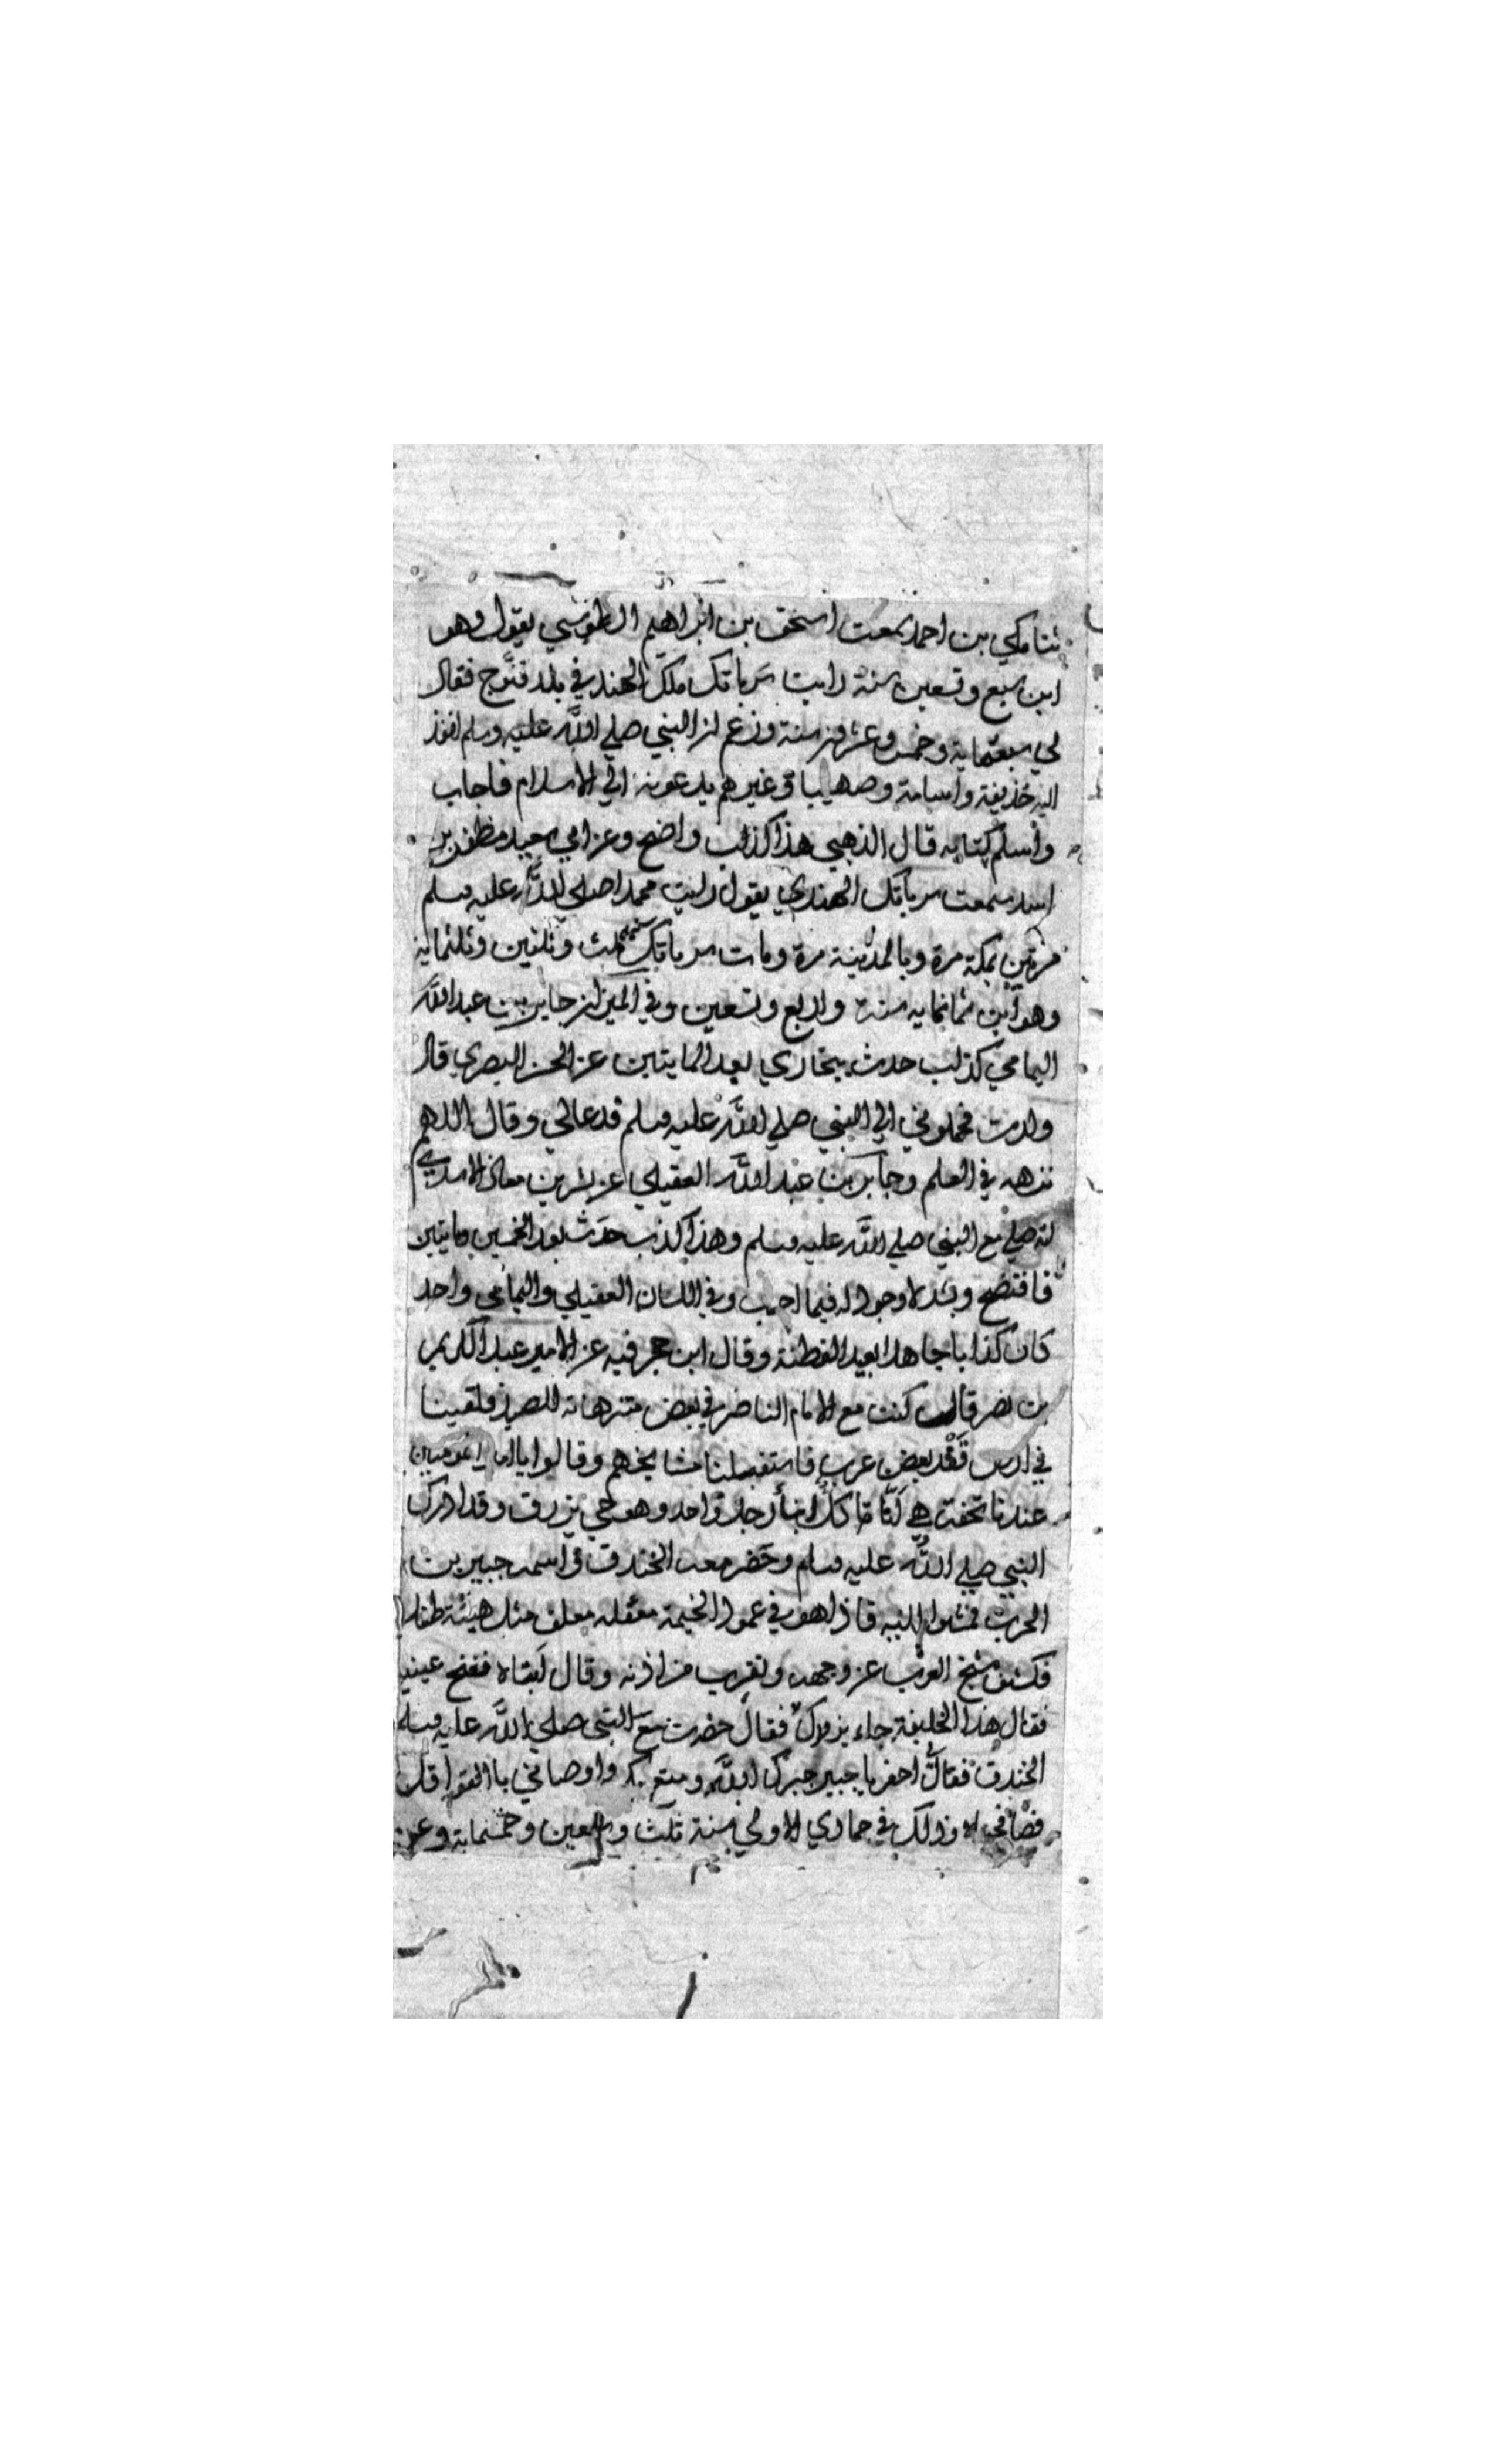 ثنا مكي بن احمد سمعت اسحق بن ابراهيم الطوسي يقول وهو
ابن سبع وتسعين سنة رايت سرباتك ملك الهند في بلد قنوج فقال
لي سبعمايه وخمس وعشرون سنة وزعم ان النبي صلي الله عليه وسلم انفذ
اليه حذيفة واسامة وصهيبا وغيرهم يدعونه الي الاسلام فاجاب
واسلم كتابه قال الذهبي هذا كذب واضح وعن ابي سعيد مظفر بن
اسد سمعت سرباتك الهندي يقول رايت محمدا صلي الله عليه وسلم
مرتين بمكة مرة وبالمدينة مرة ومات سرباتك سنة ثلث وثلثين وثلثمايه
وهو ابن ثمانمايه سنة واربع وتسعين وفي الميزان جابر بن عبد الله
اليمامي كذاب حدث ببخاري بعد المايتين عن الحسن البصري قال
ولدت فحملوني الي النبي صلي الله عليه وسلم فدعالي وقال اللهم
نزهه في العلم وجابر بن عبد الله العقيلي عن بشر بن معاذ الاسدي
انه صلي مع النبي صلي الله عليه وسلم وهذا كذب حدث بعد الخمسين ومايتين
فافتضح وبشر لا وجود له فيما احسب وفي اللسان العقيلي واليمامي واحد
كان كذابا جاهلا بعيد الفطنة وقال ابن حجر فيه عن الامير عبد الكريم
بن نصر قال كنت مع الامام الناصر في بعض متنزهاته للصيد فلقينا
في ارض قفد بعض عرب فاستقبلنا مشايخهم وقالوا يا امير المومنين
عندنا تحفة هي انا كلنا ابناء رجل واحد وهو حي يرزق وقد ادرك
النبي صلي الله عليه وسلم وحضر معه الخندق واسمه جبير بن
الحرث فمشوا اليه فاذا هو في عمود الخيمة معلق مثل هيئة طفل
فكشف شيخ العرب عن وجهه وتقرب من اذنه وقال ابتاه ففتح عينيه
فقال هذا الخليفة جاء يزورك فقال حضرت مع النبي صلي الله عليه وسلم
الخندق فقال احفر يا جبير جبرك الله ومتع بك واوصاني
وذلك في جمادي الاولي سنة ثلث وسبعين وخمسماية وعن